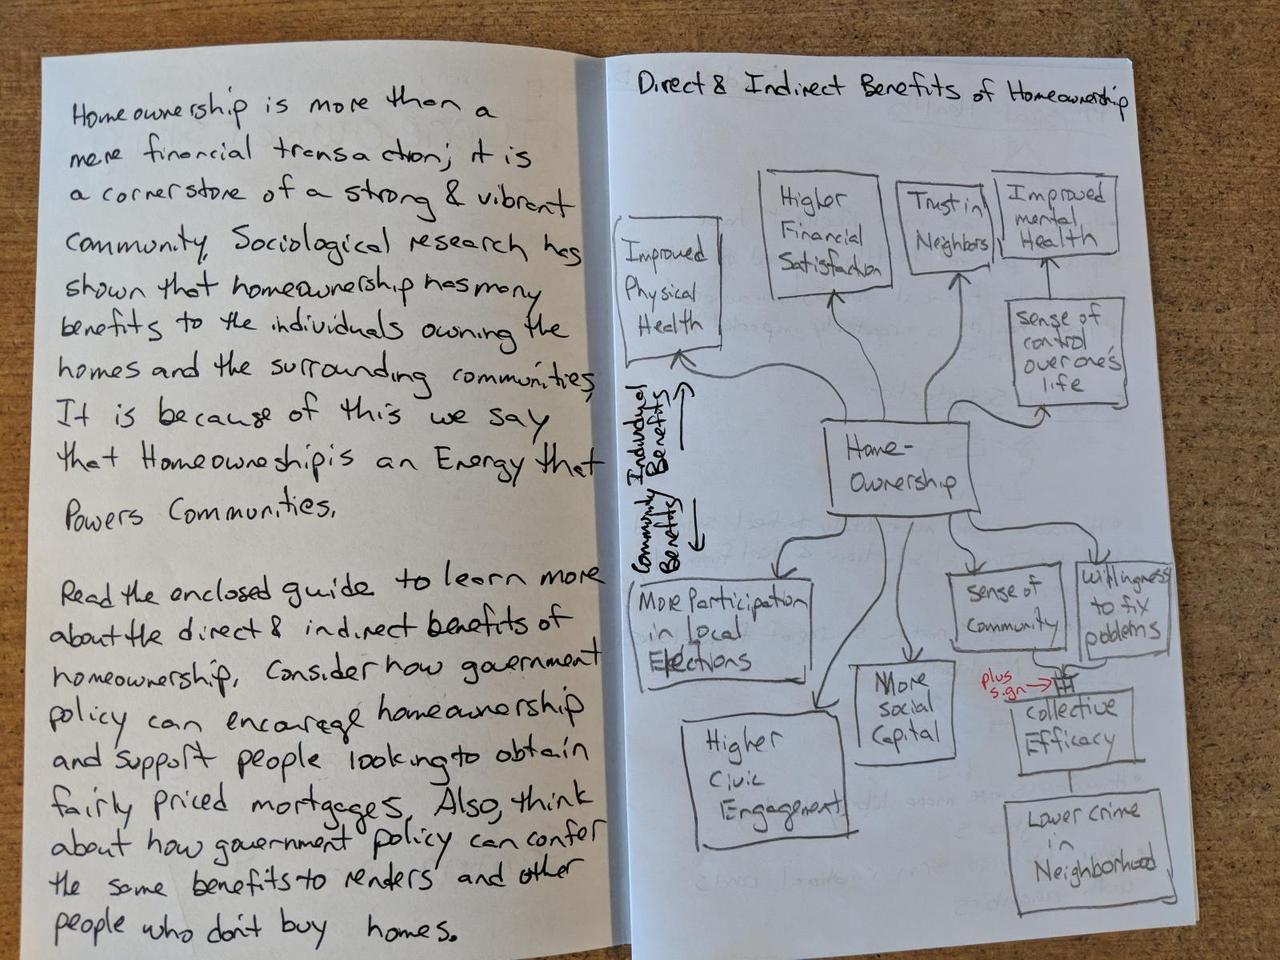 Homeownership is more than a
mere financial transaction; it is
a cornerstone of a strong & vibrant
community. Sociological research has
shown that homeownership has many
benefits to the individuals owning the
homes and the surrounding communities.
It is because of this we say
that Homeownership is an Energy that
Powers Communities.
Read the enclosed guide to learn more
about the direct & indirect benefits of
homeownership. Consider how government
policy can encourage homeownership
and support people looking to obtain
fairly priced mortgages. Also, think
about how government policy can confer
the same benefits to renters and other
people who don't buy homes.
Direct & Indirect Benefits of Homeownership
Improved
Physical
Health
Higher
Financial
Satisfaction
Trust in
Neighbors
Improved
mental
Health
sense of
control
over one's
life
Individual
Benefits
Community
Benefits
Home-
Ownership
More Participation
in Local
Elections
Higher
Civic
Engagement
More
Social
Capital
sense of
community
willingness
to fix
problems
plus
sign
Collective
Efficacy
Lower crime
in
Neighborhood